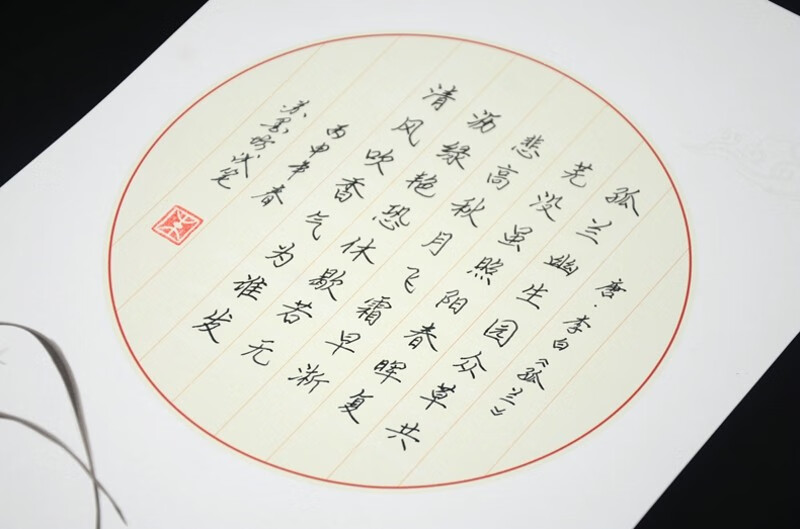 唐·李白《孤兰》
孤兰幽生园众草共
芜没虽照阳春晖复
悲高秋月飞霜早淅
沥绿艳恐休歇若无
清风吹香气为谁发
丙申年春